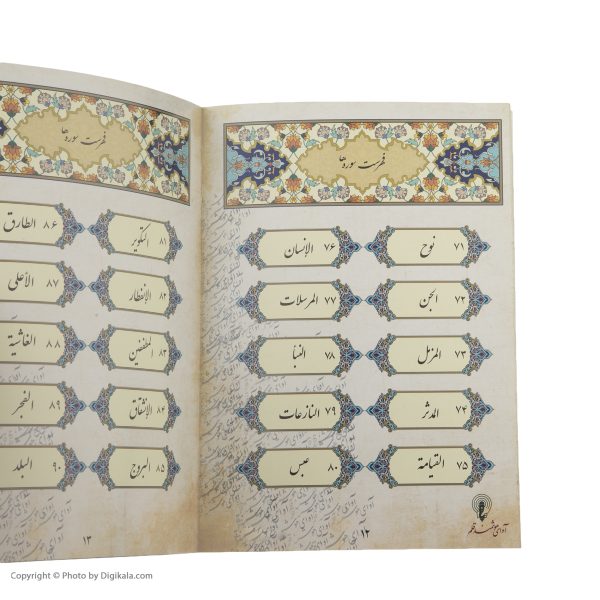 فهرست سوره‌ها
۷۱ نوح
۷۲ الجن
۷۳ المزمل
۷۴ المدثر
۷۵ القیامة
۷۶ الإنسان
۷۷ المرسلات
۷۸ النبأ
۷۹ النازعات
۸۰ عبس
آوای هوشمند قلم
۱۲
فهرست سوره‌ها
۸۱ التکویر
۸۲ الإنفطار
۸۳ المطففین
۸۴ الإنشقاق
۸۵ البروج
۸۶ الطارق
۸۷ الأعلی
۸۸ الغاشیة
۸۹ الفجر
۹۰ البلد
۱۳
Copyright © Photo by Digikala.com